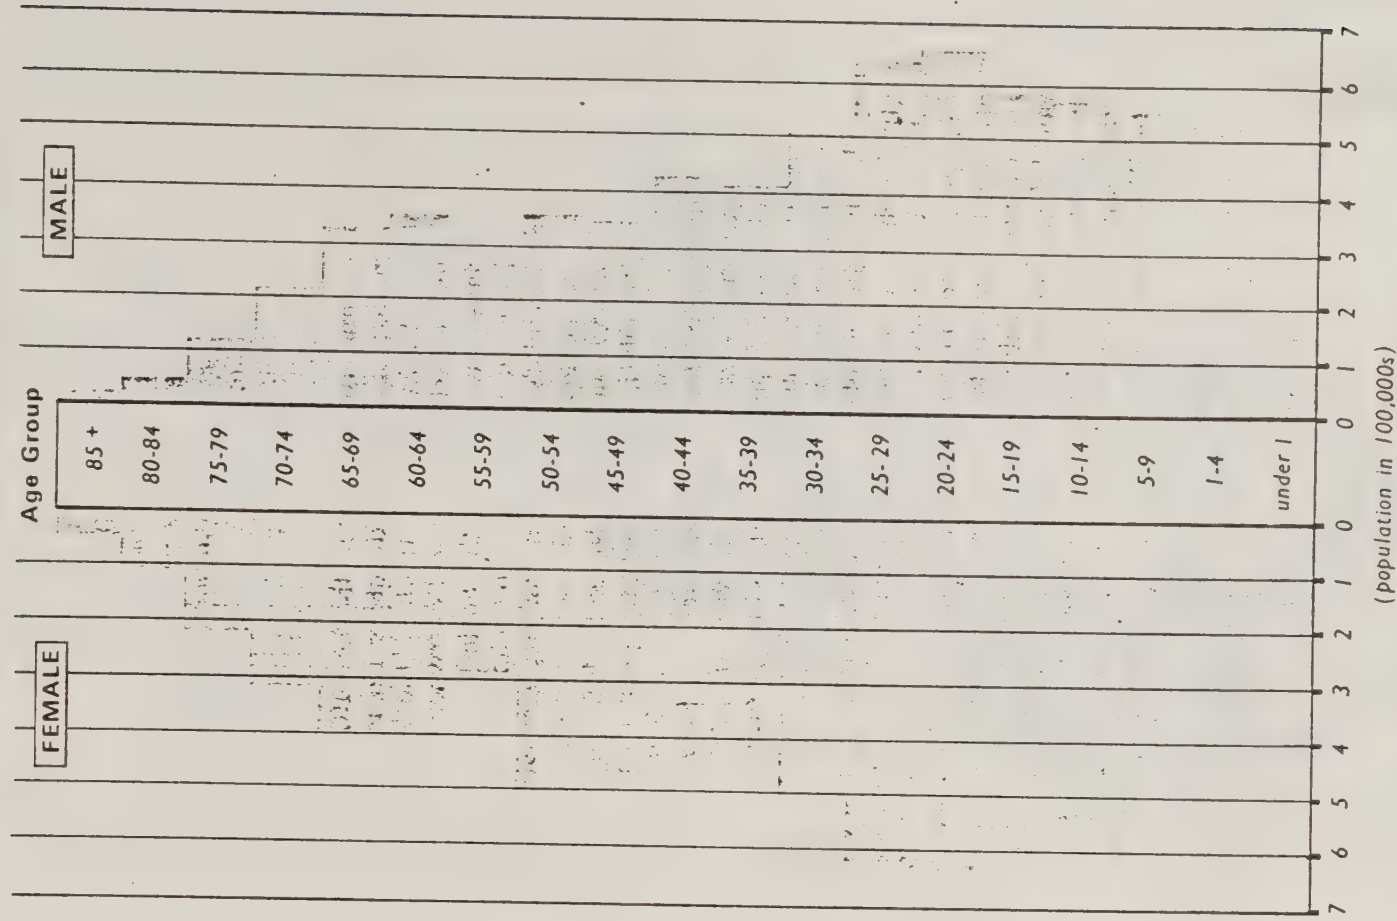 Age Group
FEMALE
MALE
85 +
80-84
75-79
70-74
65-69
60-64
55-59
50-54
45-49
40-44
35-39
30-34
25- 29
20-24
15-19
10-14
5-9
1-4
under 1
7 6 5 4 3 2 1 0 0 1 2 3 4 5 6 7
(population in 100,000s)